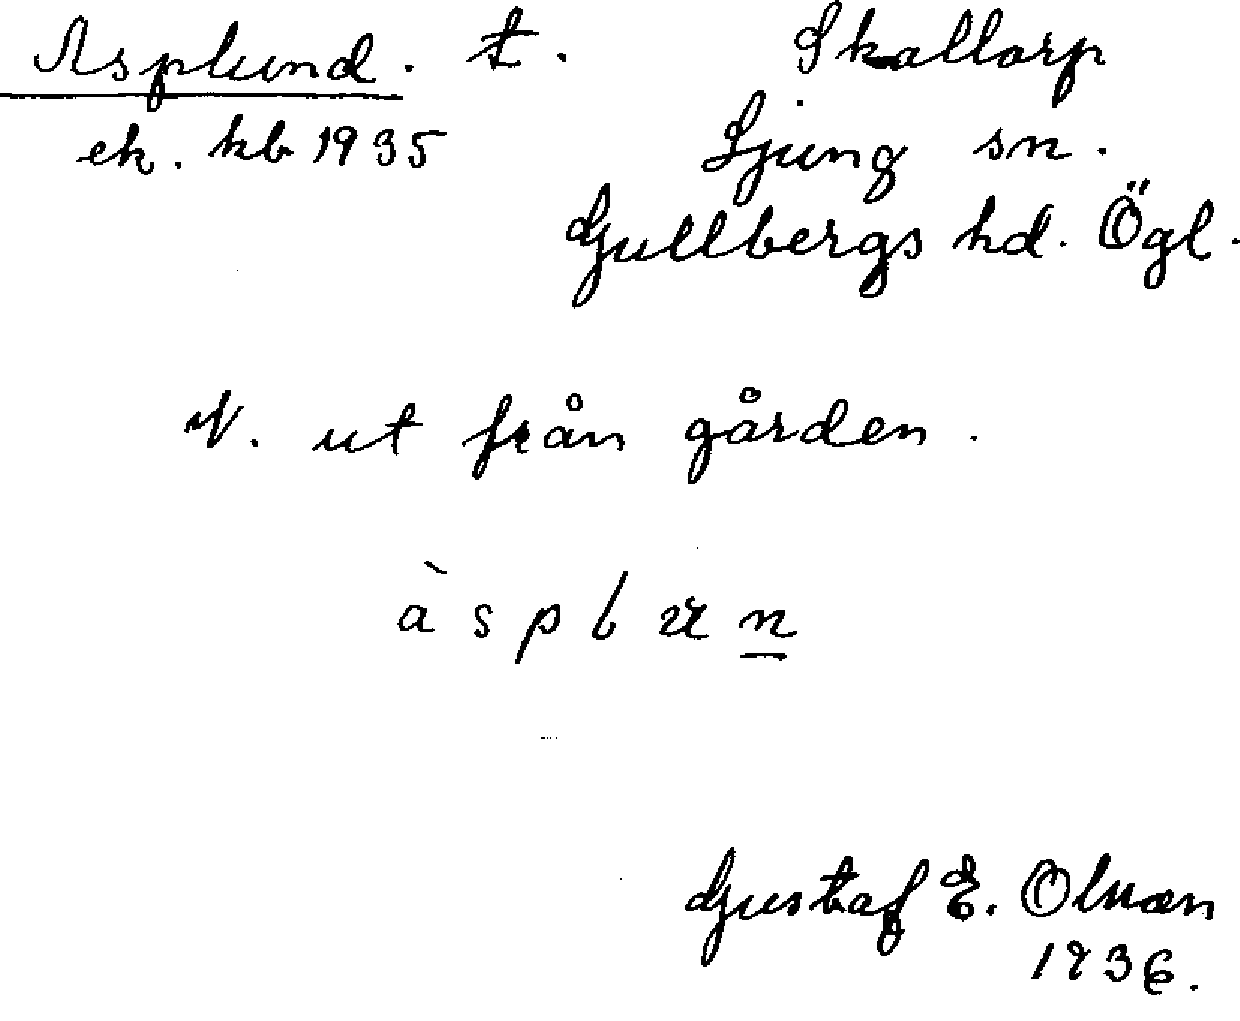 Asplund. t. Skallorp
ek. kb 1935 Ljung sn.
Gullbergs hd. Ögl.
N. ut från gården.
àsplun
Gustaf E. Olsson
1936.